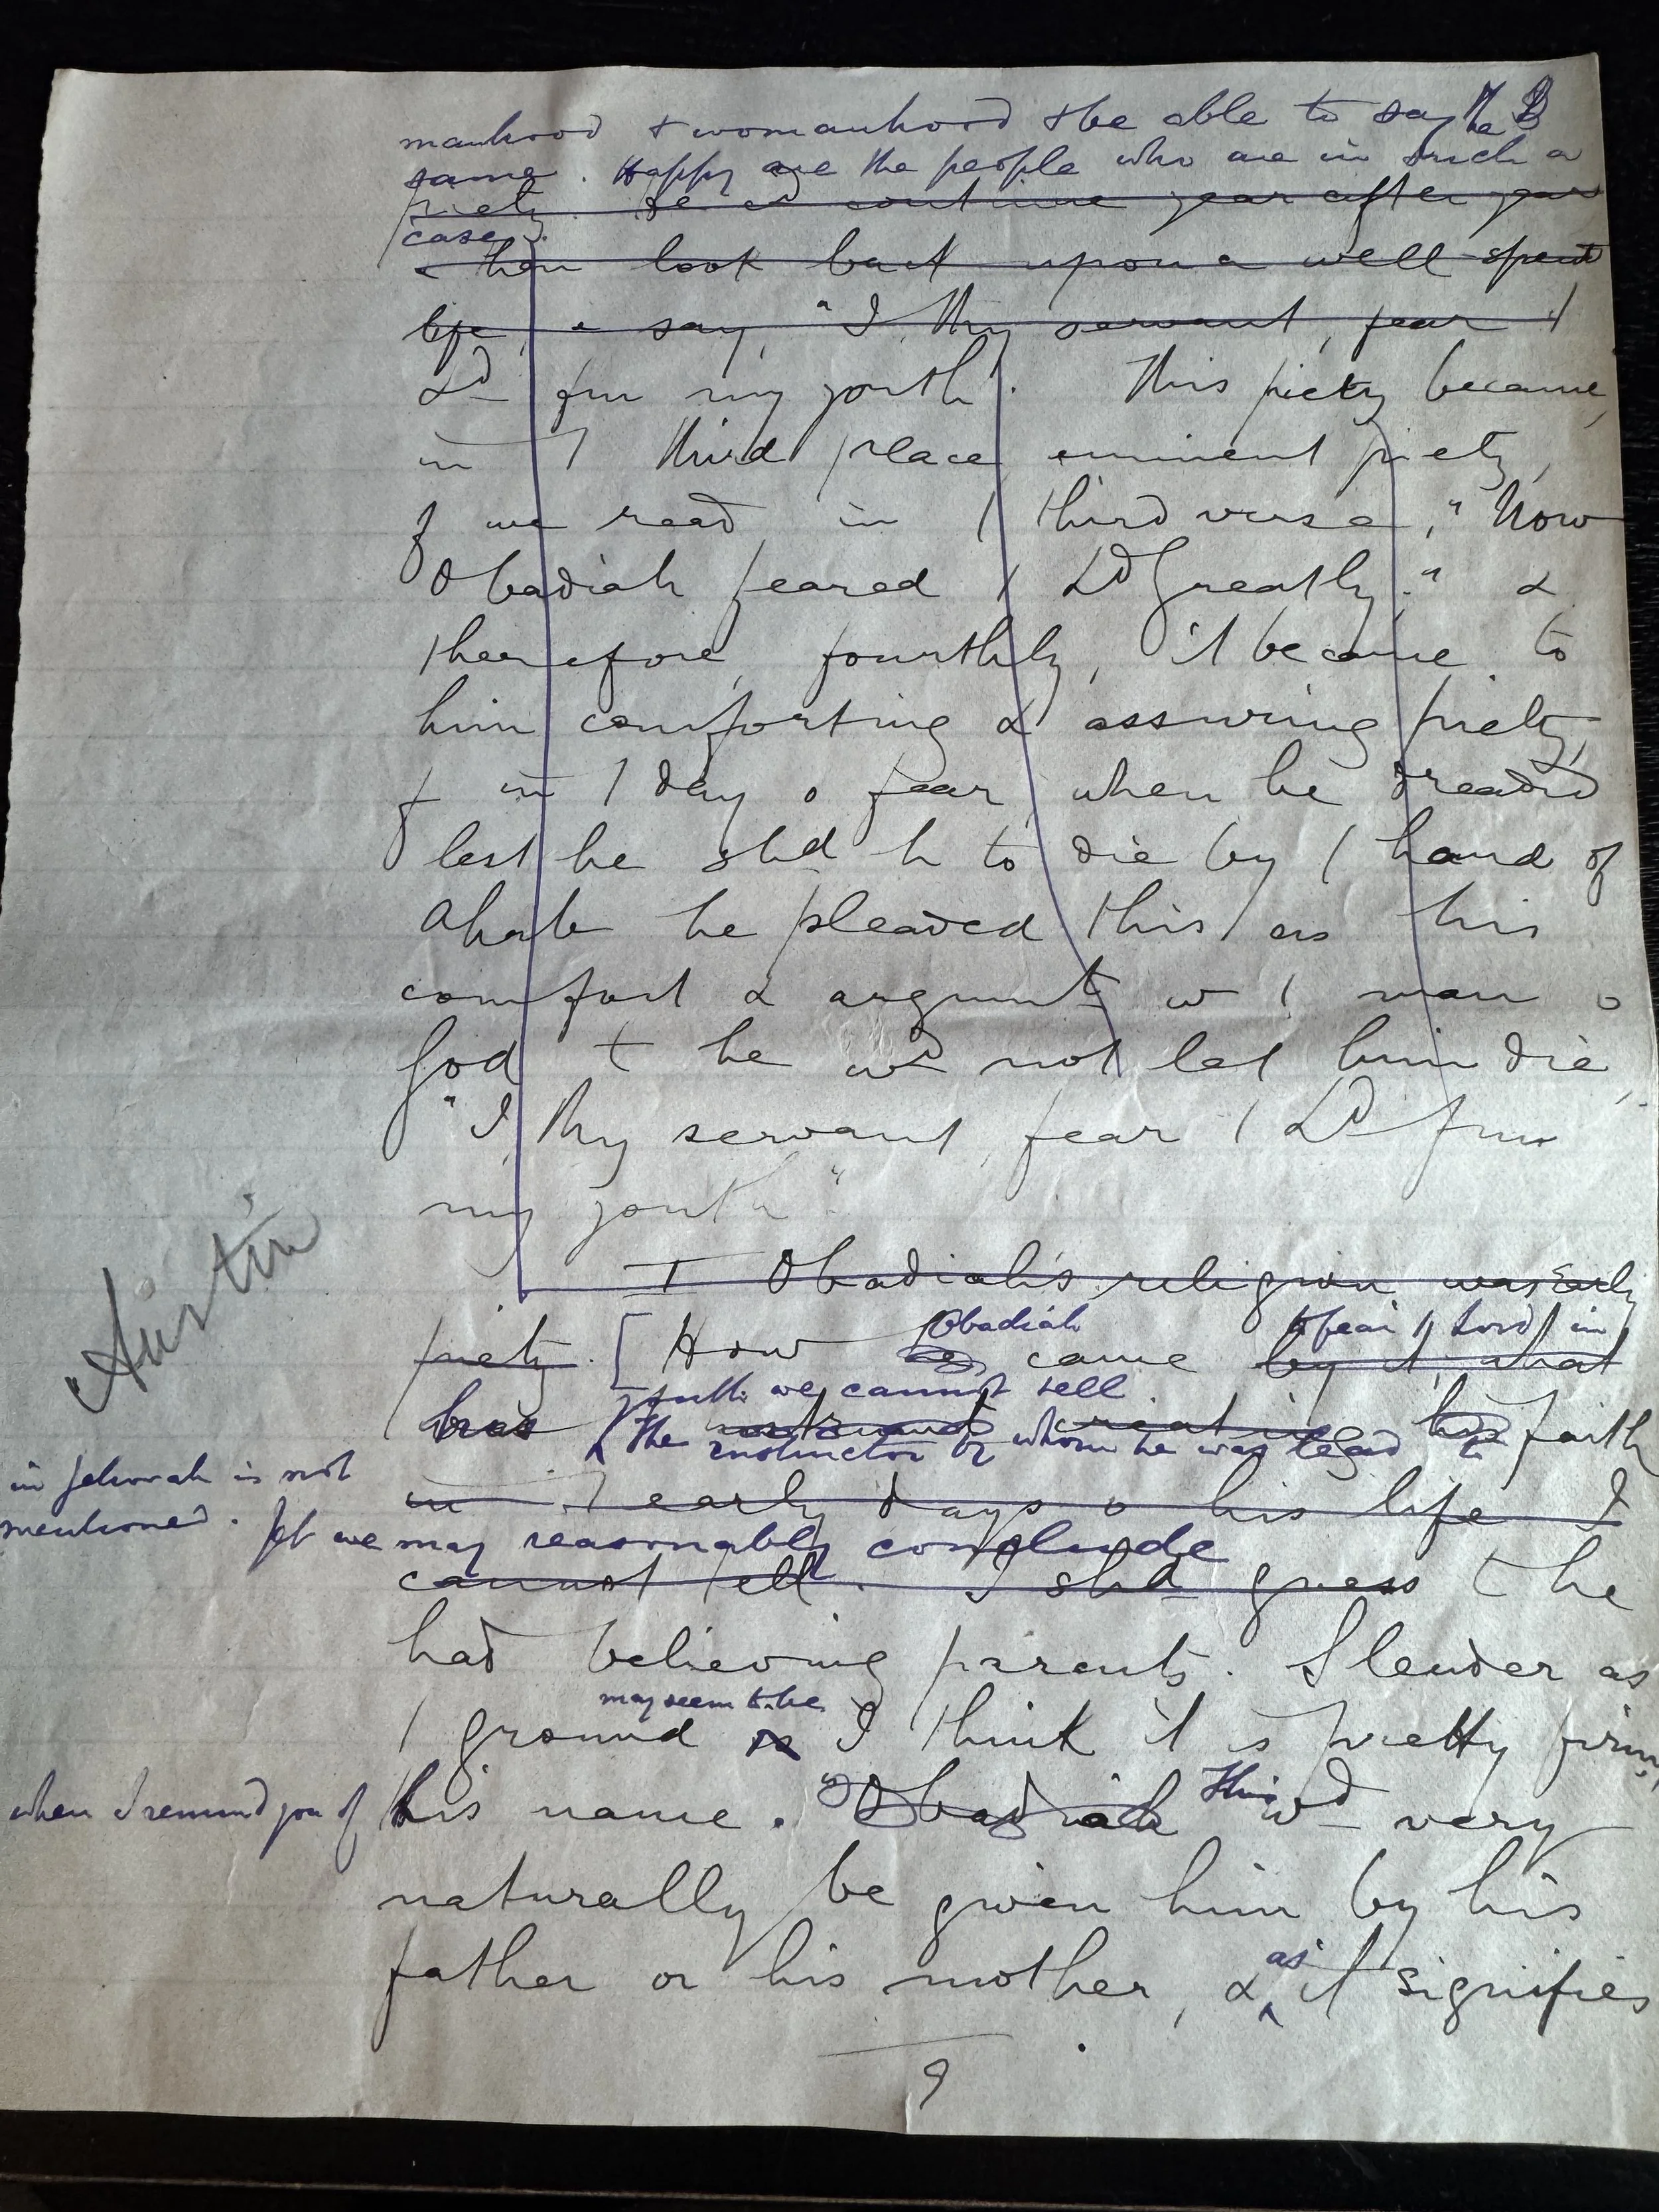 manhood & womanhood & be able to say the
same. Happy are the people who are in such a
piety. continue year after year
case.
& then look back upon a well spent
life, & say, "I thy servant, fear /
Ld fm my youth". This piety became,
in / third place eminent piety,
f we read in / third verse, "Now
Obadiah feared / Ld greatly." &
therefore, fourthly, it became to
him comforting & assuring piety,
f in / day o fear, when he dreaded
lest he shd h to die by / hand of
Ahab he pleaded this as his
comfort & argument w / man o
God t he wd not let him die,
"I, thy servant, fear / Ld fm
my youth".
Austin
I Obadiah's religion was early
Obadiah to fear / Lord in
piety. [How he came by it, what
youth we cannot tell.
was instrumt creating his faith
The instructor by whom he was led to
in Jehovah is not
in / early days o his life I
mentioned. Yet we may reasonably conclude
cannot tell. I shd guess t he
had believing parents. Slender as
may seem to be
/ ground is I think it is pretty firm,
when I remind you of his name. Obadiah This wd very
naturally be given him by his
father or his mother, & as it signifies
9